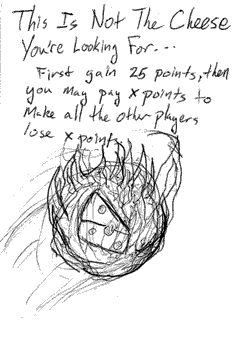 This Is Not The Cheese
You're Looking For...
First gain 25 points, then
you may pay x points to
Make all the other players
lose x points.